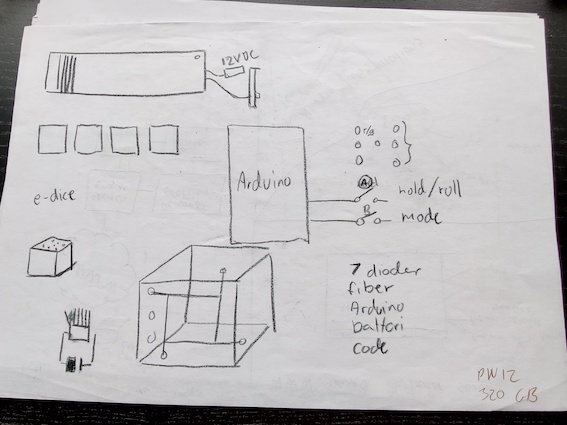 12V DC
e-dice
Arduino
A
hold/roll
B
mode
7 dioder
fiber
Arduino
battari
code
PW12
320 GB